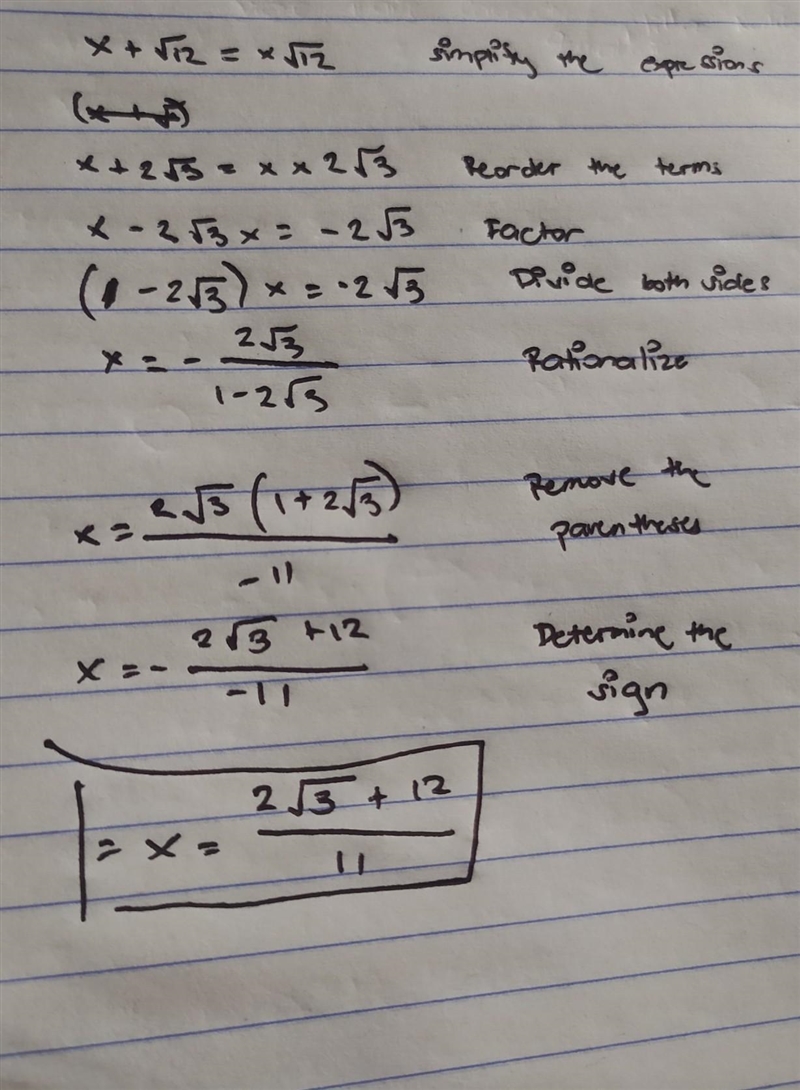 x + √12 = x√12 simplify the expressions
(x + √
x + 2√3 = x × 2√3 Reorder the terms
x - 2√3 x = -2√3 Factor
(1 - 2√3) x = -2√3 Divide both sides
x = - 2√3 / 1 - 2√3 Rationalize
x = 2√3 (1 + 2√3) / -11 Remove the parentheses
x = - 2√3 + 12 / -11 Determine the sign
= x = 2√3 + 12 / 11